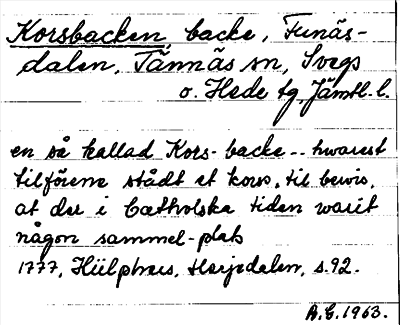 Korsbacken backe, Funäs-
dalen, Tännäs sn, Svegs
o. Hede tg, Jämtl. l.
en så kallad Kors-backe -- hwarest
tilförene stådt et kors, til bewis,
at der i Catholska tiden warit
någon sammel-plats
1777, Hülphers, Herjedalen, s. 92.
A.G. 1963.